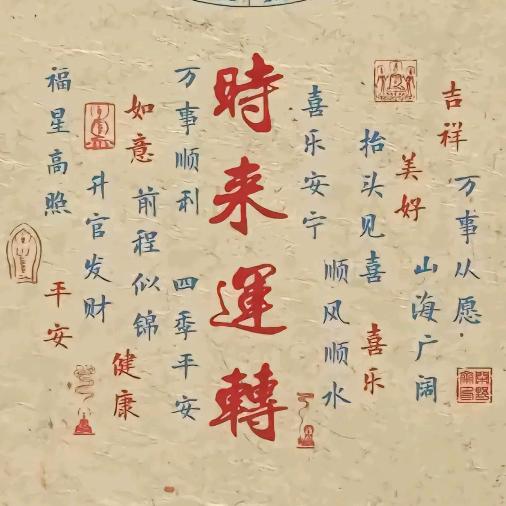 吉祥
万事从愿
美好
山海广阔
抬头见喜
喜乐
喜乐安宁
顺风顺水
時来運轉
万事顺利
四季平安
如意
前程似锦
健康
升官发财
福星高照
平安